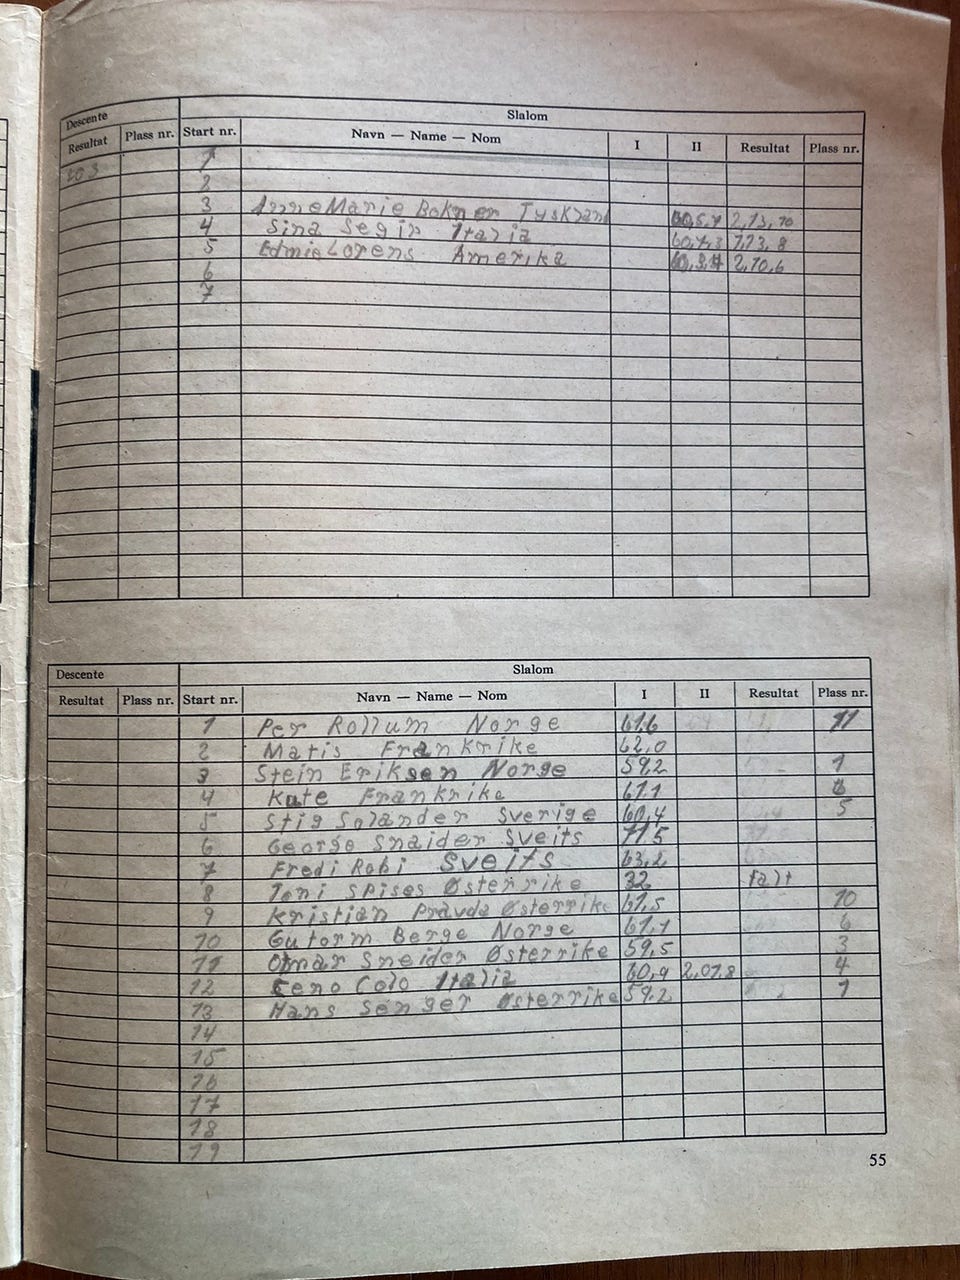 Descente Slalom
Resultat Plass nr. Start nr. Navn — Name — Nom I II Resultat Plass nr.
1
2
3 Anne Marie Bokner Tyskland 60,5,4 2,13,10
4 Sina Segir Italia 60,4,3
5 Edmie Lorens Amerika 2,10,6
6
7
Descente Slalom
Resultat Plass nr. Start nr. Navn — Name — Nom I II Resultat Plass nr.
1 Per Rollum Norge 61,6 11
2 Matis Frankrike 62,0
3 Stein Eriksen Norge 59,2 1
4 Kute Frankrike 61,1
5 Stig Solander Sverige 60,4 5
6 George Snaider Sveits 71,5
7 Fredi Robi Sveits 63,2
8 Toni Spises Østerrike 32 falt
9 Kristian Pravda Østerrike 61,5 10
10 Gutorm Berge Norge 61,1 6
11 Otmar Sneider Østerrike 59,5 3
12 Ceno Colo Italia 60,9 2,01,8 4
13 Hans Senger Østerrike 59,2 1
14
15
16
17
18
19
55